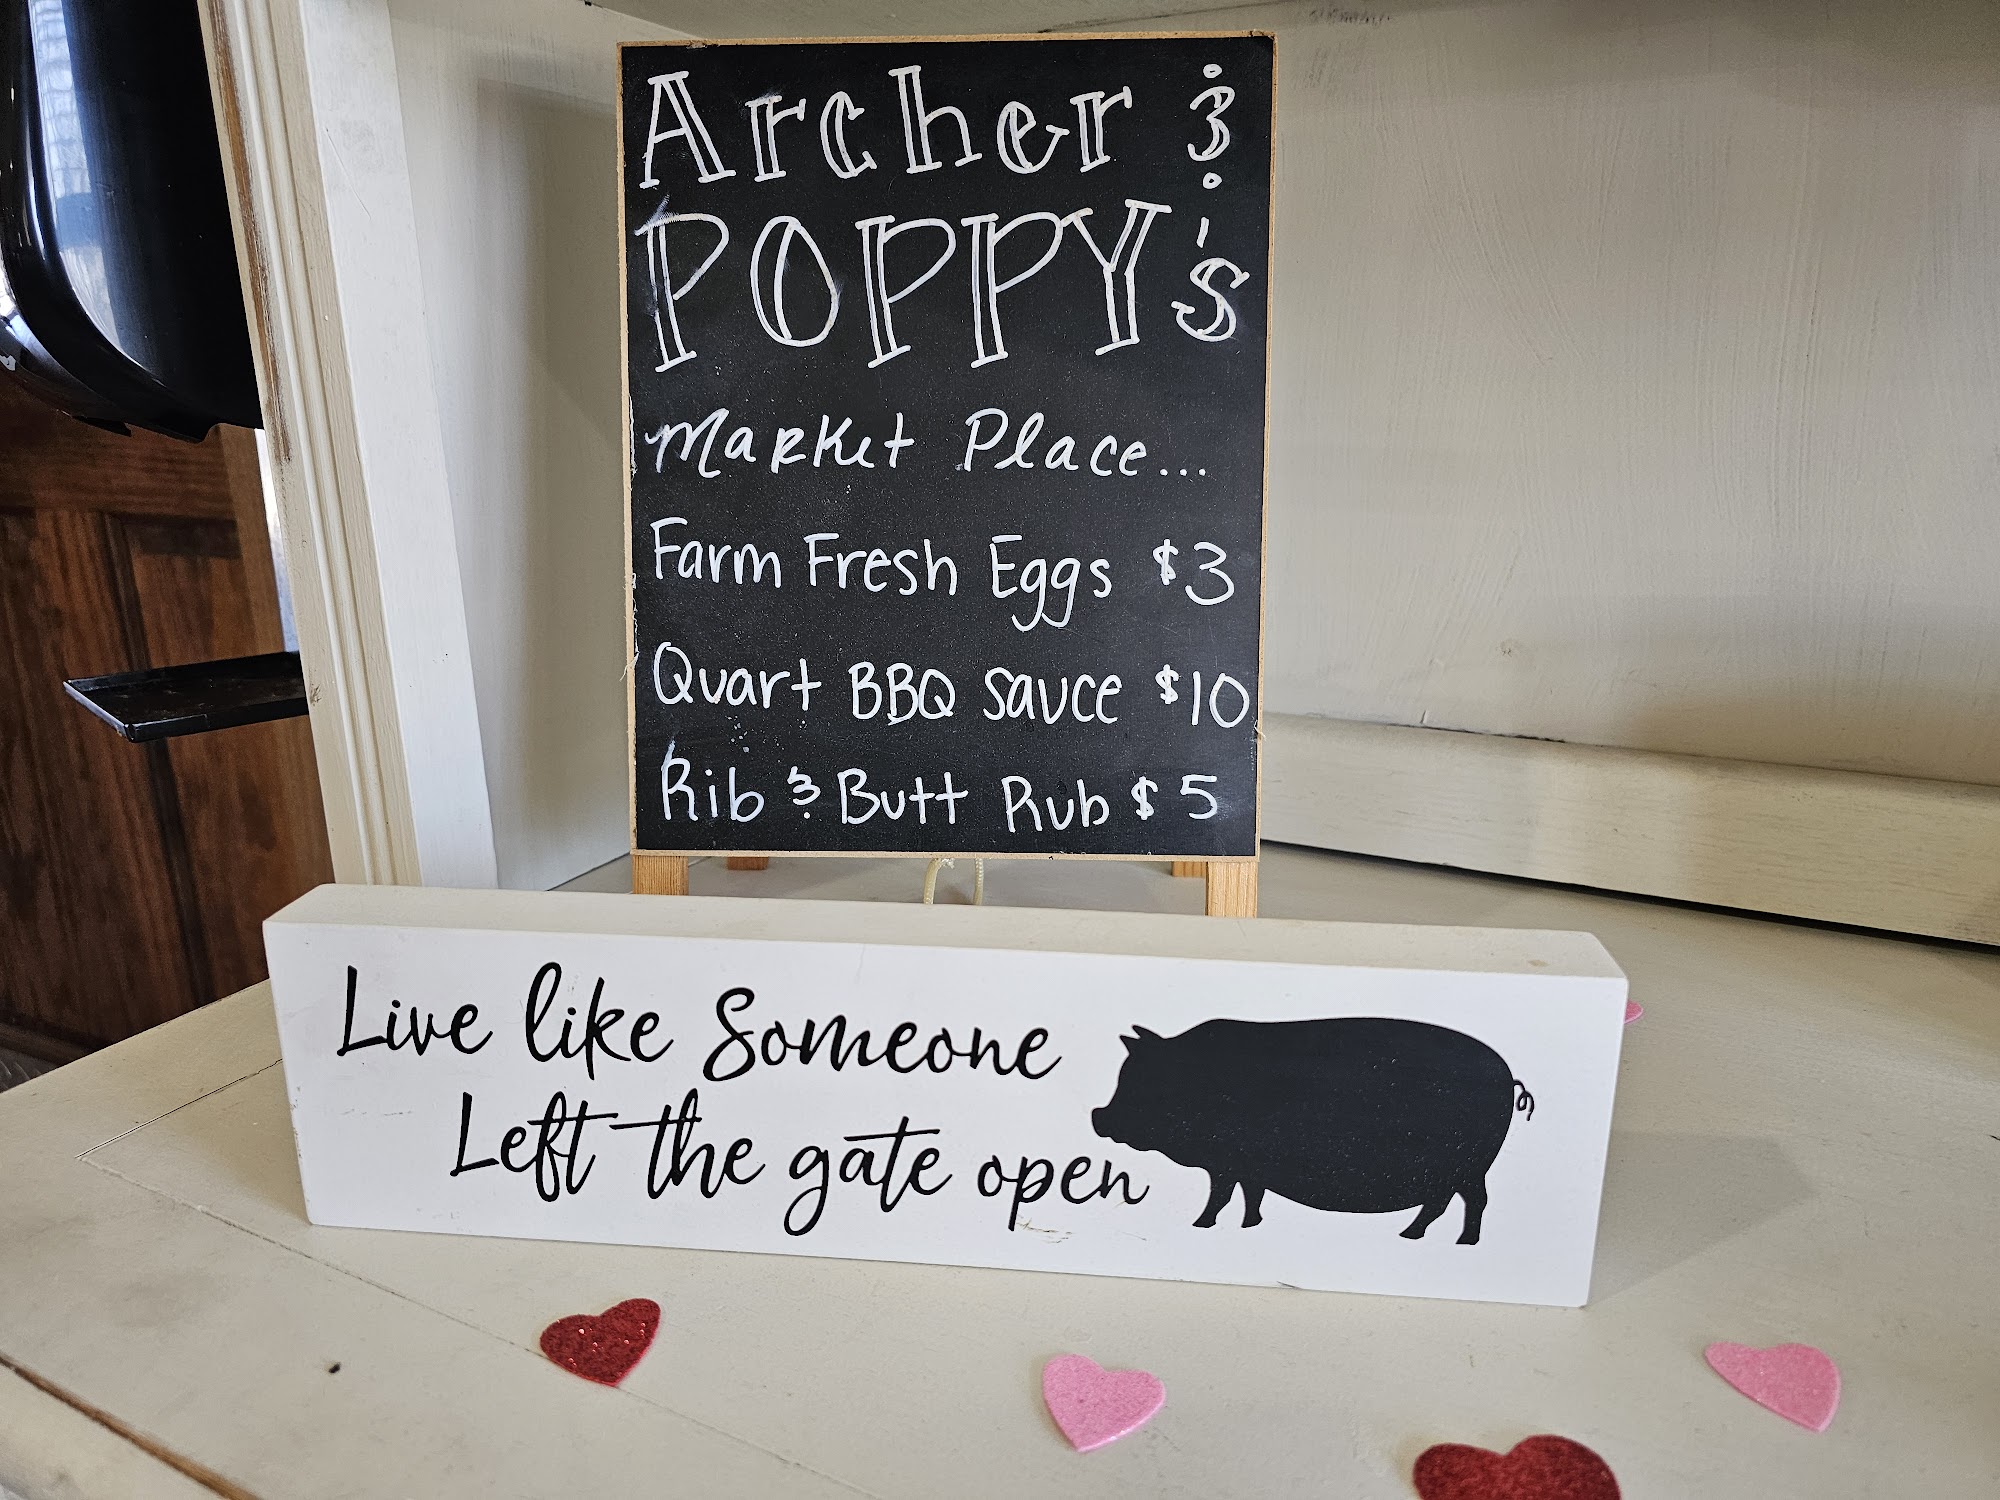 Archer &
POPPY's
Market Place...
Farm Fresh Eggs $3
Quart BBQ Sauce $10
Rib & Butt Rub $5
Live like Someone
Left the gate open